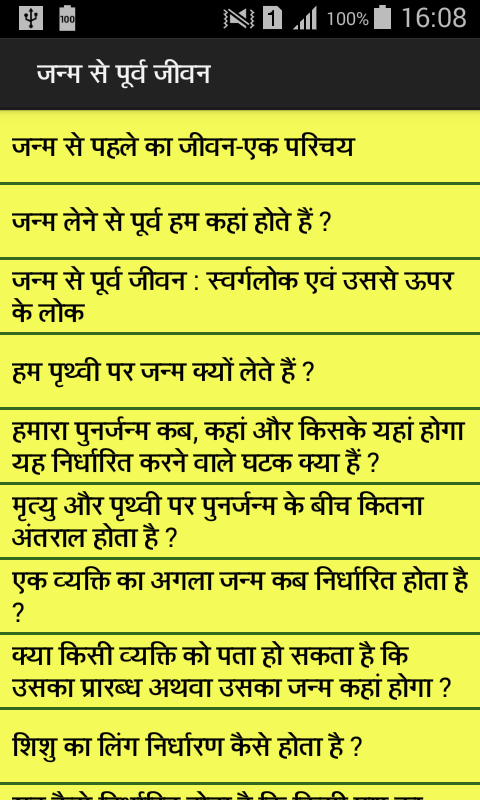 100 1 100% 16:08
जन्म से पूर्व जीवन
जन्म से पहले का जीवन-एक परिचय
जन्म लेने से पूर्व हम कहां होते हैं ?
जन्म से पूर्व जीवन : स्वर्गलोक एवं उससे ऊपर
के लोक
हम पृथ्वी पर जन्म क्यों लेते हैं ?
हमारा पुनर्जन्म कब, कहां और किसके यहां होगा
यह निर्धारित करने वाले घटक क्या हैं ?
मृत्यु और पृथ्वी पर पुनर्जन्म के बीच कितना
अंतराल होता है ?
एक व्यक्ति का अगला जन्म कब निर्धारित होता है
?
क्या किसी व्यक्ति को पता हो सकता है कि
उसका प्रारब्ध अथवा उसका जन्म कहां होगा ?
शिशु का लिंग निर्धारण कैसे होता है ?